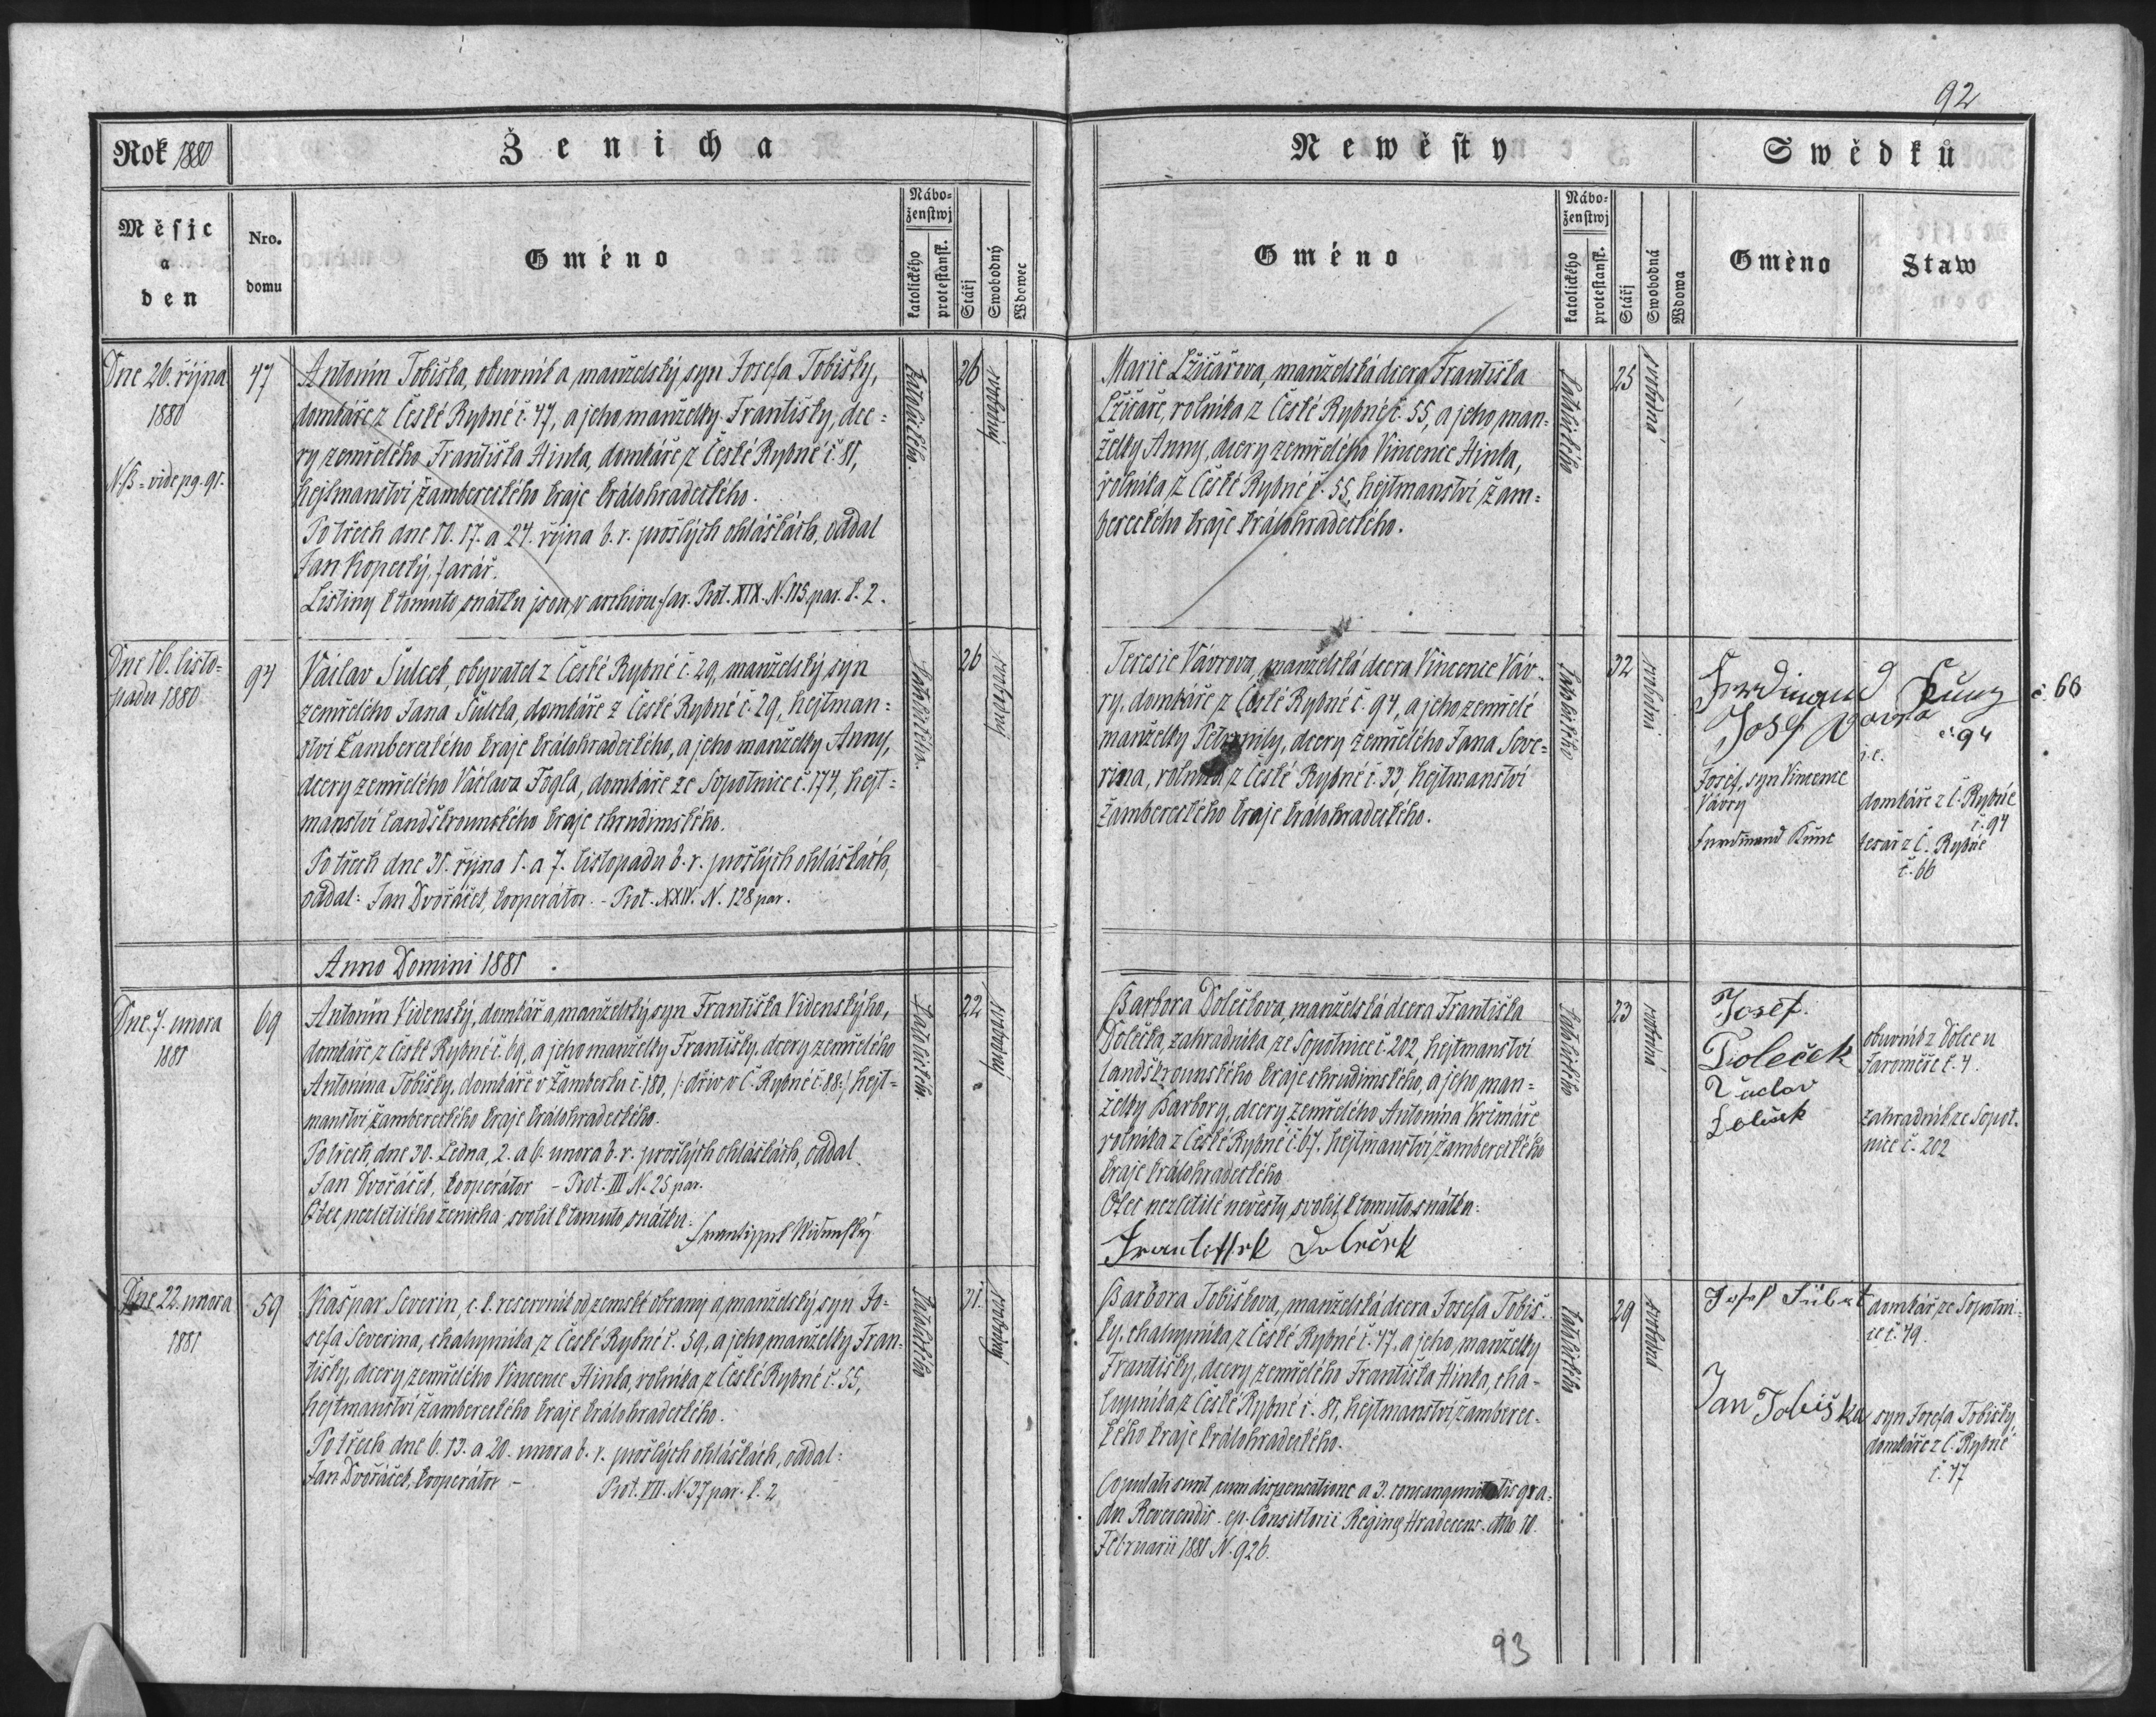 92
Rok 1880
Ženicha
Newěsty
Swědků
Měsjc
a
den
Nro.
domu
Gméno
Nábo-
ženstwj
katolického
protestanſk.
Stářj
Swobodný
Wdowec
Gméno
Nábo-
ženstwj
katolického
protestanſk.
Stářj
Swobodná
Wdowa
Gméno
Staw
Dne 26. října
1880
N.B = vide pg. 91.
47
Antonín Tobiška, obuvník a manželský syn Josefa Tobišky,
domkáře z České Rybné č. 47, a jeho manželky Františky, dce=
ry zemřelého Františka Hinka, domkáře z České Rybné č. 81,
hejtmanství žambereckého kraje králohradeckého.
Po třech dne 10. 17. a 24. října b. r. prošlých ohláškách, oddal
Jan Kopecký, farář.
Listiny k tomuto snátku jsou v archivu far. Prot. XIX. N. 115 par. k. 2.
katolického.
26
svobodný
Marie Lžičařova, manželská dcera Františka
Lžičaře, rolníka z České Rybné č. 55, a jeho man=
želky Anny, dcery zemřelého Vincence Hinka,
rolníka z České Rybné č. 55, hejtmanství žam=
bereckého kraje králohradeckého.
katolického
25
svobodná
Dne 16. listo=
padu 1880
94
Václav Šulcek, obyvatel z České Rybné č. 29, manželský syn
zemřelého Jana Šulcka, domkáře z České Rybné č. 29, hejtman=
ství žambereckého kraje králohradeckého, a jeho manželky Anny,
dcery zemřelého Václava Fogla, domkáře ze Sopotnice č. 174, hejt=
manství landškrounského kraje chrudimského.
Po třech dne 31. října 1. a 7. listopadu b. r. prošlých ohláškách,
oddal: Jan Dvořáček, kooperátor. - Prot. XXIV. N. 128 par.
katolického.
26
svobodný
Teresie Vávrova, manželská dcera Vincence Váv-
ry, domkáře z České Rybné č. 94, a jeho zemřelé
manželky Petronily, dcery zemřelého Jana Seve=
rina, rolníka z České Rybné č. 33, hejtmanství
žambereckého kraje králohradeckého.
katolického
32
svobodná
Ferdinand Kunc č. 66
Josef Vavra
č. 94
i.e.
Josef, syn Vincence
Vávry
domkáře z Č. Rybné
č. 94
Ferdinand Kunc
tesař z Č. Rybné
č. 66
Anno Domini 1881
Dne 7. února
1881
69
Antonín Videnský, domkář a manželský syn Františka Videnskýho,
domkáře z České Rybné č. 69, a jeho manželky Františky, dcery zemřelého
Antonína Tobišky, domkáře v Žamberku č. 180, /: dřív v Č. Rybné č. 88 :/ hejt=
manství žambereckého kraje králohradeckého.
Po třech dne 30. ledna, 2. a 6. února b. r. prošlých ohláškách, oddal
Jan Dvořáček, kooperátor - Prot. III N. 25 par.
Otec nezletilého ženicha svolil k tomuto snátku:
Frantisschek Widensky
katolického
22
svobodný
Barbora Dolečkova, manželská dcera Františka
Dolečka, zahradníka ze Sopotnice č. 202, hejtmanství
landškrounského kraje chrudimského, a jeho man=
želky Barbory, dcery zemřelého Antonína Krčmáře,
rolníka z České Rybné č. 67. hejtmanství žambereckého
kraje králohradeckého
Otec nezletilé nevěsty svolil k tomuto snátku:
Frantissek Doleček
katolického
23
svobodná
Josef
Doleček
obuvník z Dolec u
Jaroměře č. 4.
Václav
Doleček
zahradník ze Sopot.
nice č. 202
Dne 22. února
1881
59
Kašpar Severin, c. k. reservník od zemské obrany a manželský syn Jo=
sefa Severina, chalupníka z České Rybné č. 59, a jeho manželky Fran=
tišky, dcery zemřelého Vincence Hinka, rolníka z České Rybné č. 55,
hejtmanství žambereckého kraje králohradeckého.
Po třech dne 6. 13. a 20. února b. r. prošlých ohláškách, oddal:
Jan Dvořáček, kooperátor -
Prot. VII. N. 37 par. k. 2
katolického
31.
svobodný
Barbora Tobiškova, manželská dcera Josefa Tobiš-
ky, chalupníka z České Rybné č. 47, a jeho manželky
Františky, dcery zemřelého Františka Hinka, cha-
lupníka z České Rybné č. 81, hejtmanství žamberec-
kého kraje králohradeckého.
Copulati sunt cum dispensatione a 3. consanguinitatis gra=
du Reverendis. ep. Consistorii Reginae Hradecens. ddto 10.
Februarii 1881 N. 926.
katolického
29
svobodná
domkář ze Sopotni-
ce č. 79.
Jan Tobiška
syn Josefa Tobišky,
domkáře z Č. Rybné
č. 47
93